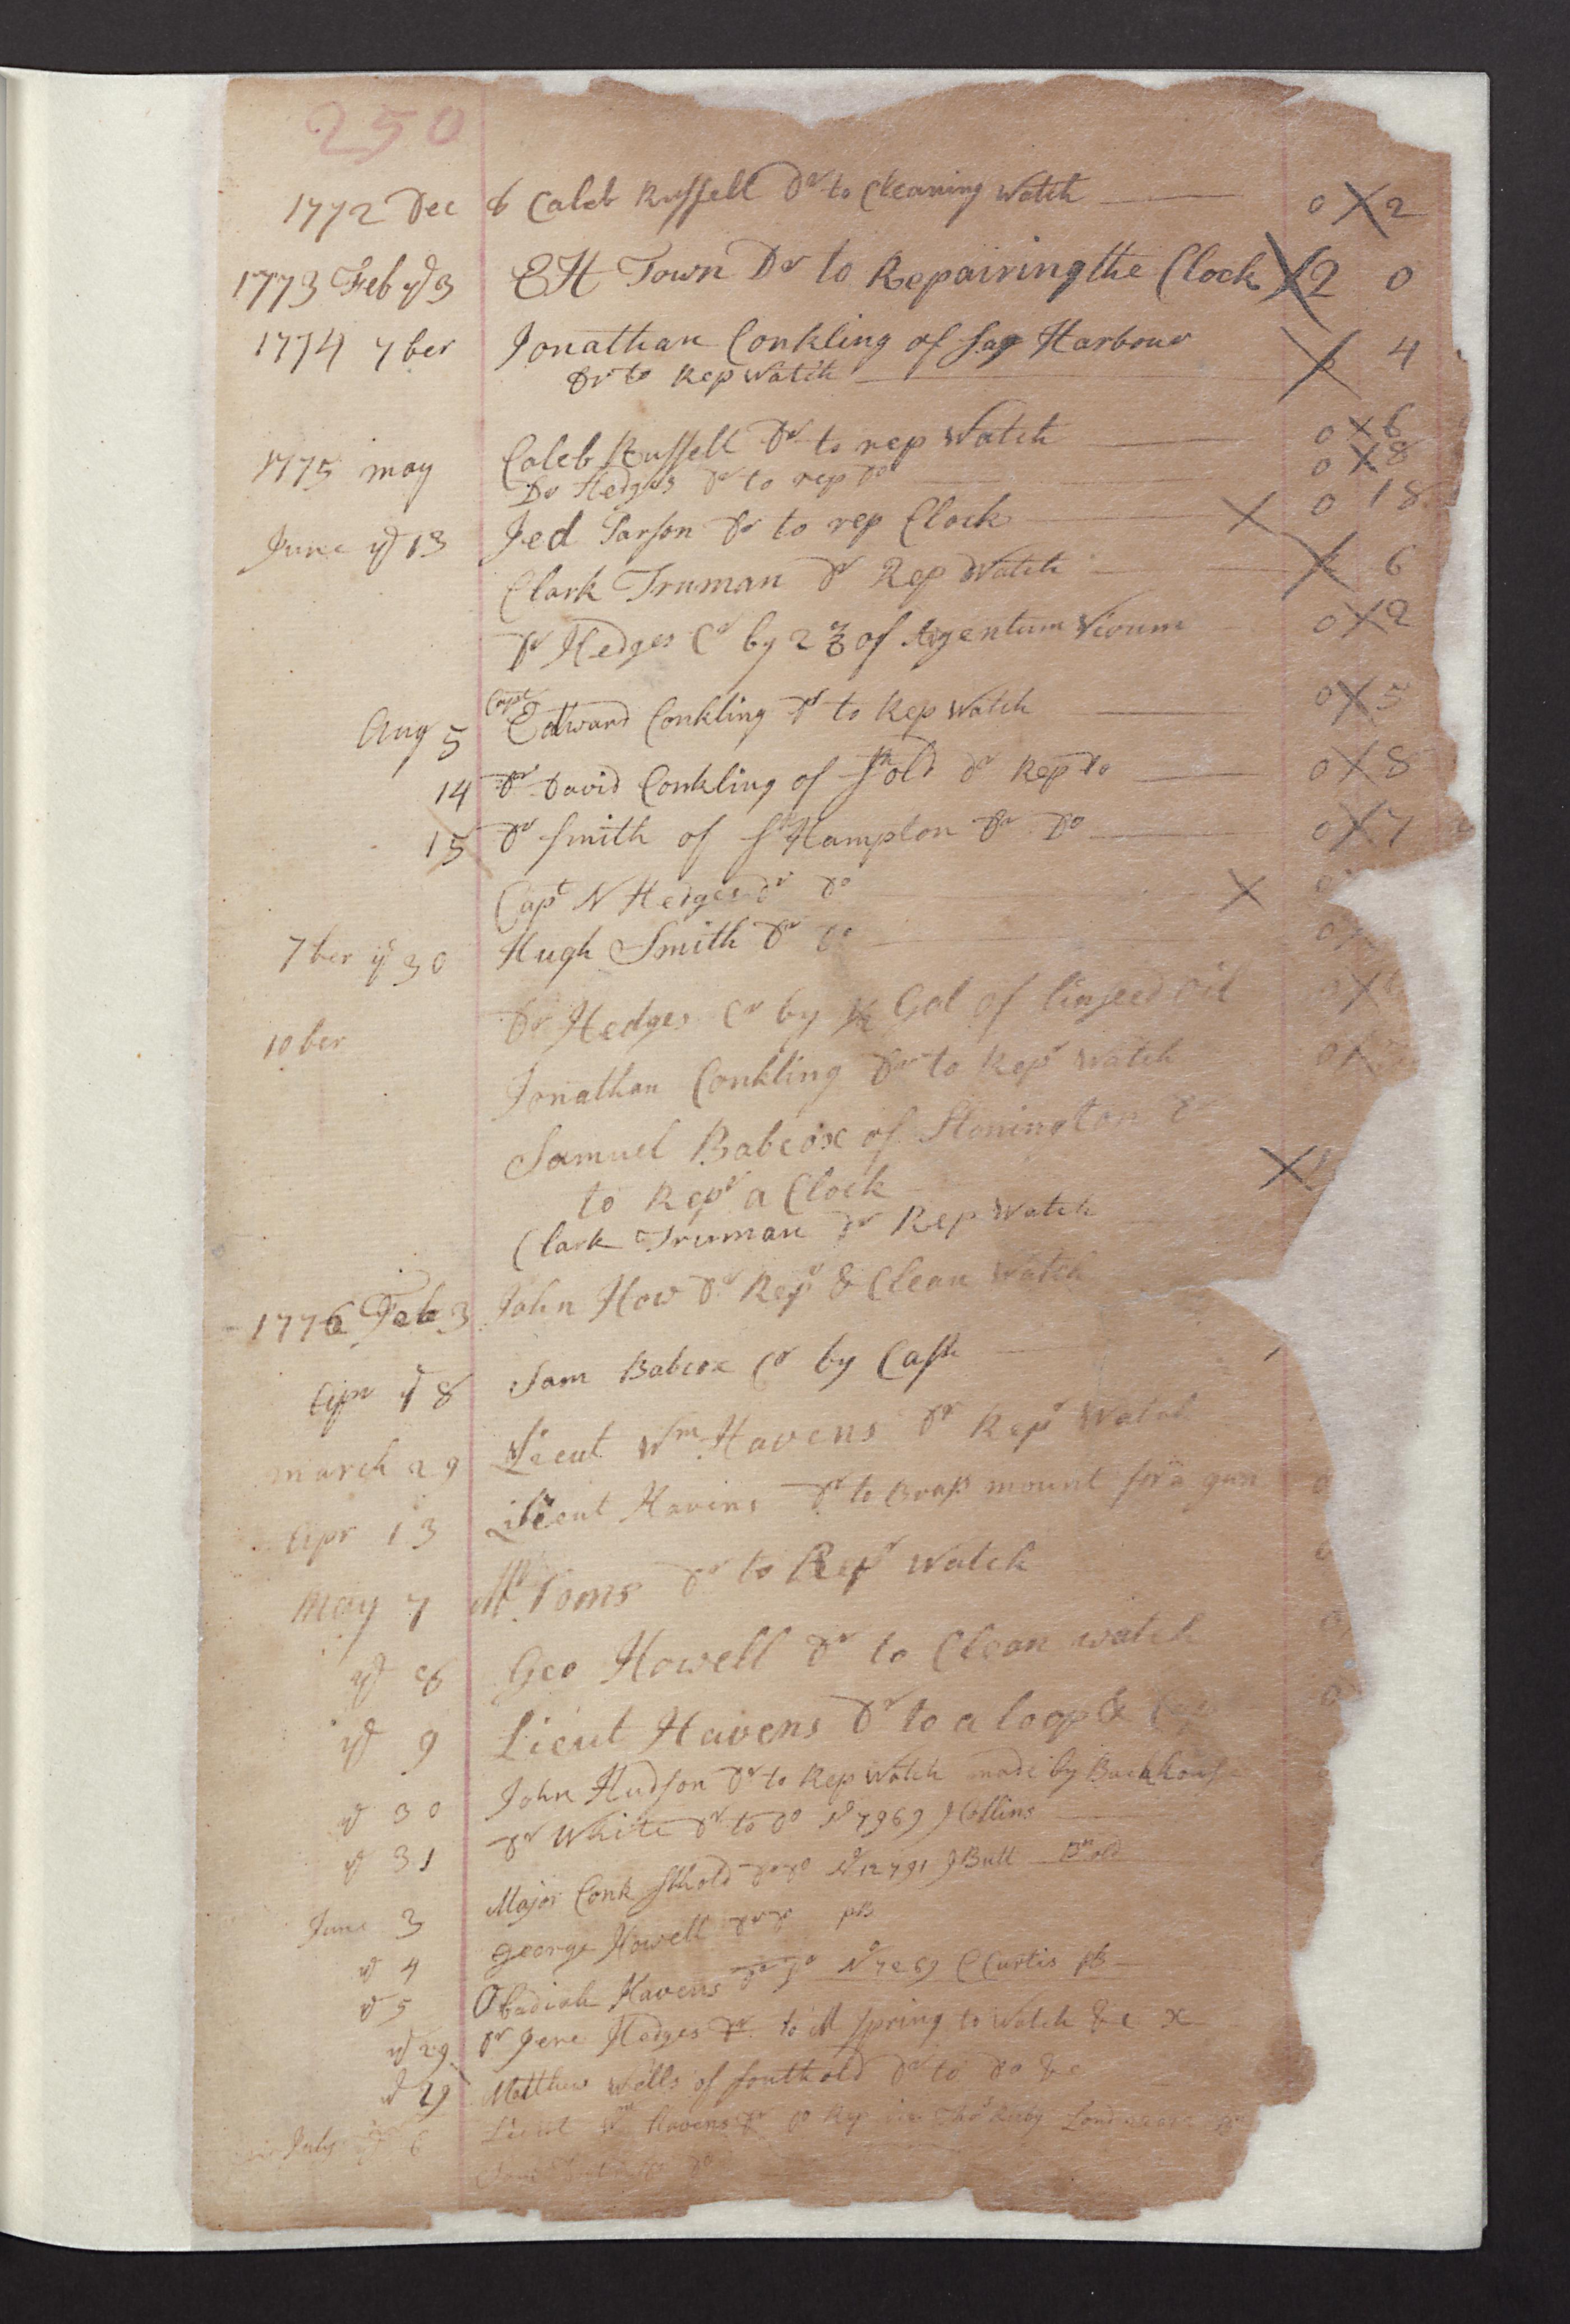 250
1772 Dec 6 Caleb Russell Dr to Cleaning Watch 0 2
1773 Feb ye 3 EH Town Dr to Repairing the Clock 2 0
1774 7ber Jonathan Conkling of Sag Harbour
Dr to Rep Watch 4
1775 may Caleb Russell Dr to rep Watch 0 6
Dr Hedges Dr to rep Do 0 8
June ye 13 Jed Parson Dr to rep Clock 0 18
Clark Truman Dr Rep Watch 6
Dr Hedges Cr by 2 ℥ of Argentum Vivum 0 2
Aug 5 Capt Edward Conkling Dr to Rep Watch 0 5
14 Dr David Conkling of Shold Dr Rep Do 0 8
15 Dr Smith of SHampton Dr Do 0 7
Capt N Hedges Dr Do
7ber ye 30 Hugh Smith Dr Do 0
10ber Dr Hedges Cr by ½ Gal of linseed oil
Jonathan Conkling Dr to Repr Watch 0
Samuel Babcox of Stonington Dr
to Repr a Clock
Clark Truman Dr Rep Watch
1776 Feb 3 John How Dr Repr & Clean Watch
Apr ye 8 Sam Babcox Cr by Cash
march 29 Lieut Wm Havens Dr Repr Watch
Apr 13 Lieut Havins Dr to Brass mount for a gun 0
May 7 Mr Toms Dr to Repr Watch
ye 8 Geo Howell Dr to Clean watch
ye 9 Lieut Havens Dr to a loop &
ye 30 John Hudson Dr to Rep Watch made by Backhouse
ye 31 Dr White Dr to Do No 7969 J Collins
June 3 Major Conk Shold Dr Do No 12791 J Bull
ye 4 George Howell Dr Do pB
ye 5 Obadiah Havens Dr Do No 7269 C Curtis pB
ye 29 Dr Jere Hedges Dr to M Spring to Watch &c x
ye 29 Matthew Wells of Southold Dr to Do &c
July ye 6 Lieut Wm Havens Dr Do Rep Thos London